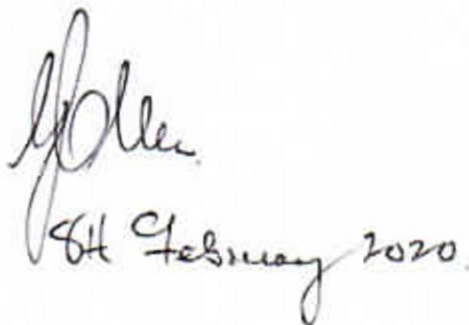 8H February 2020.